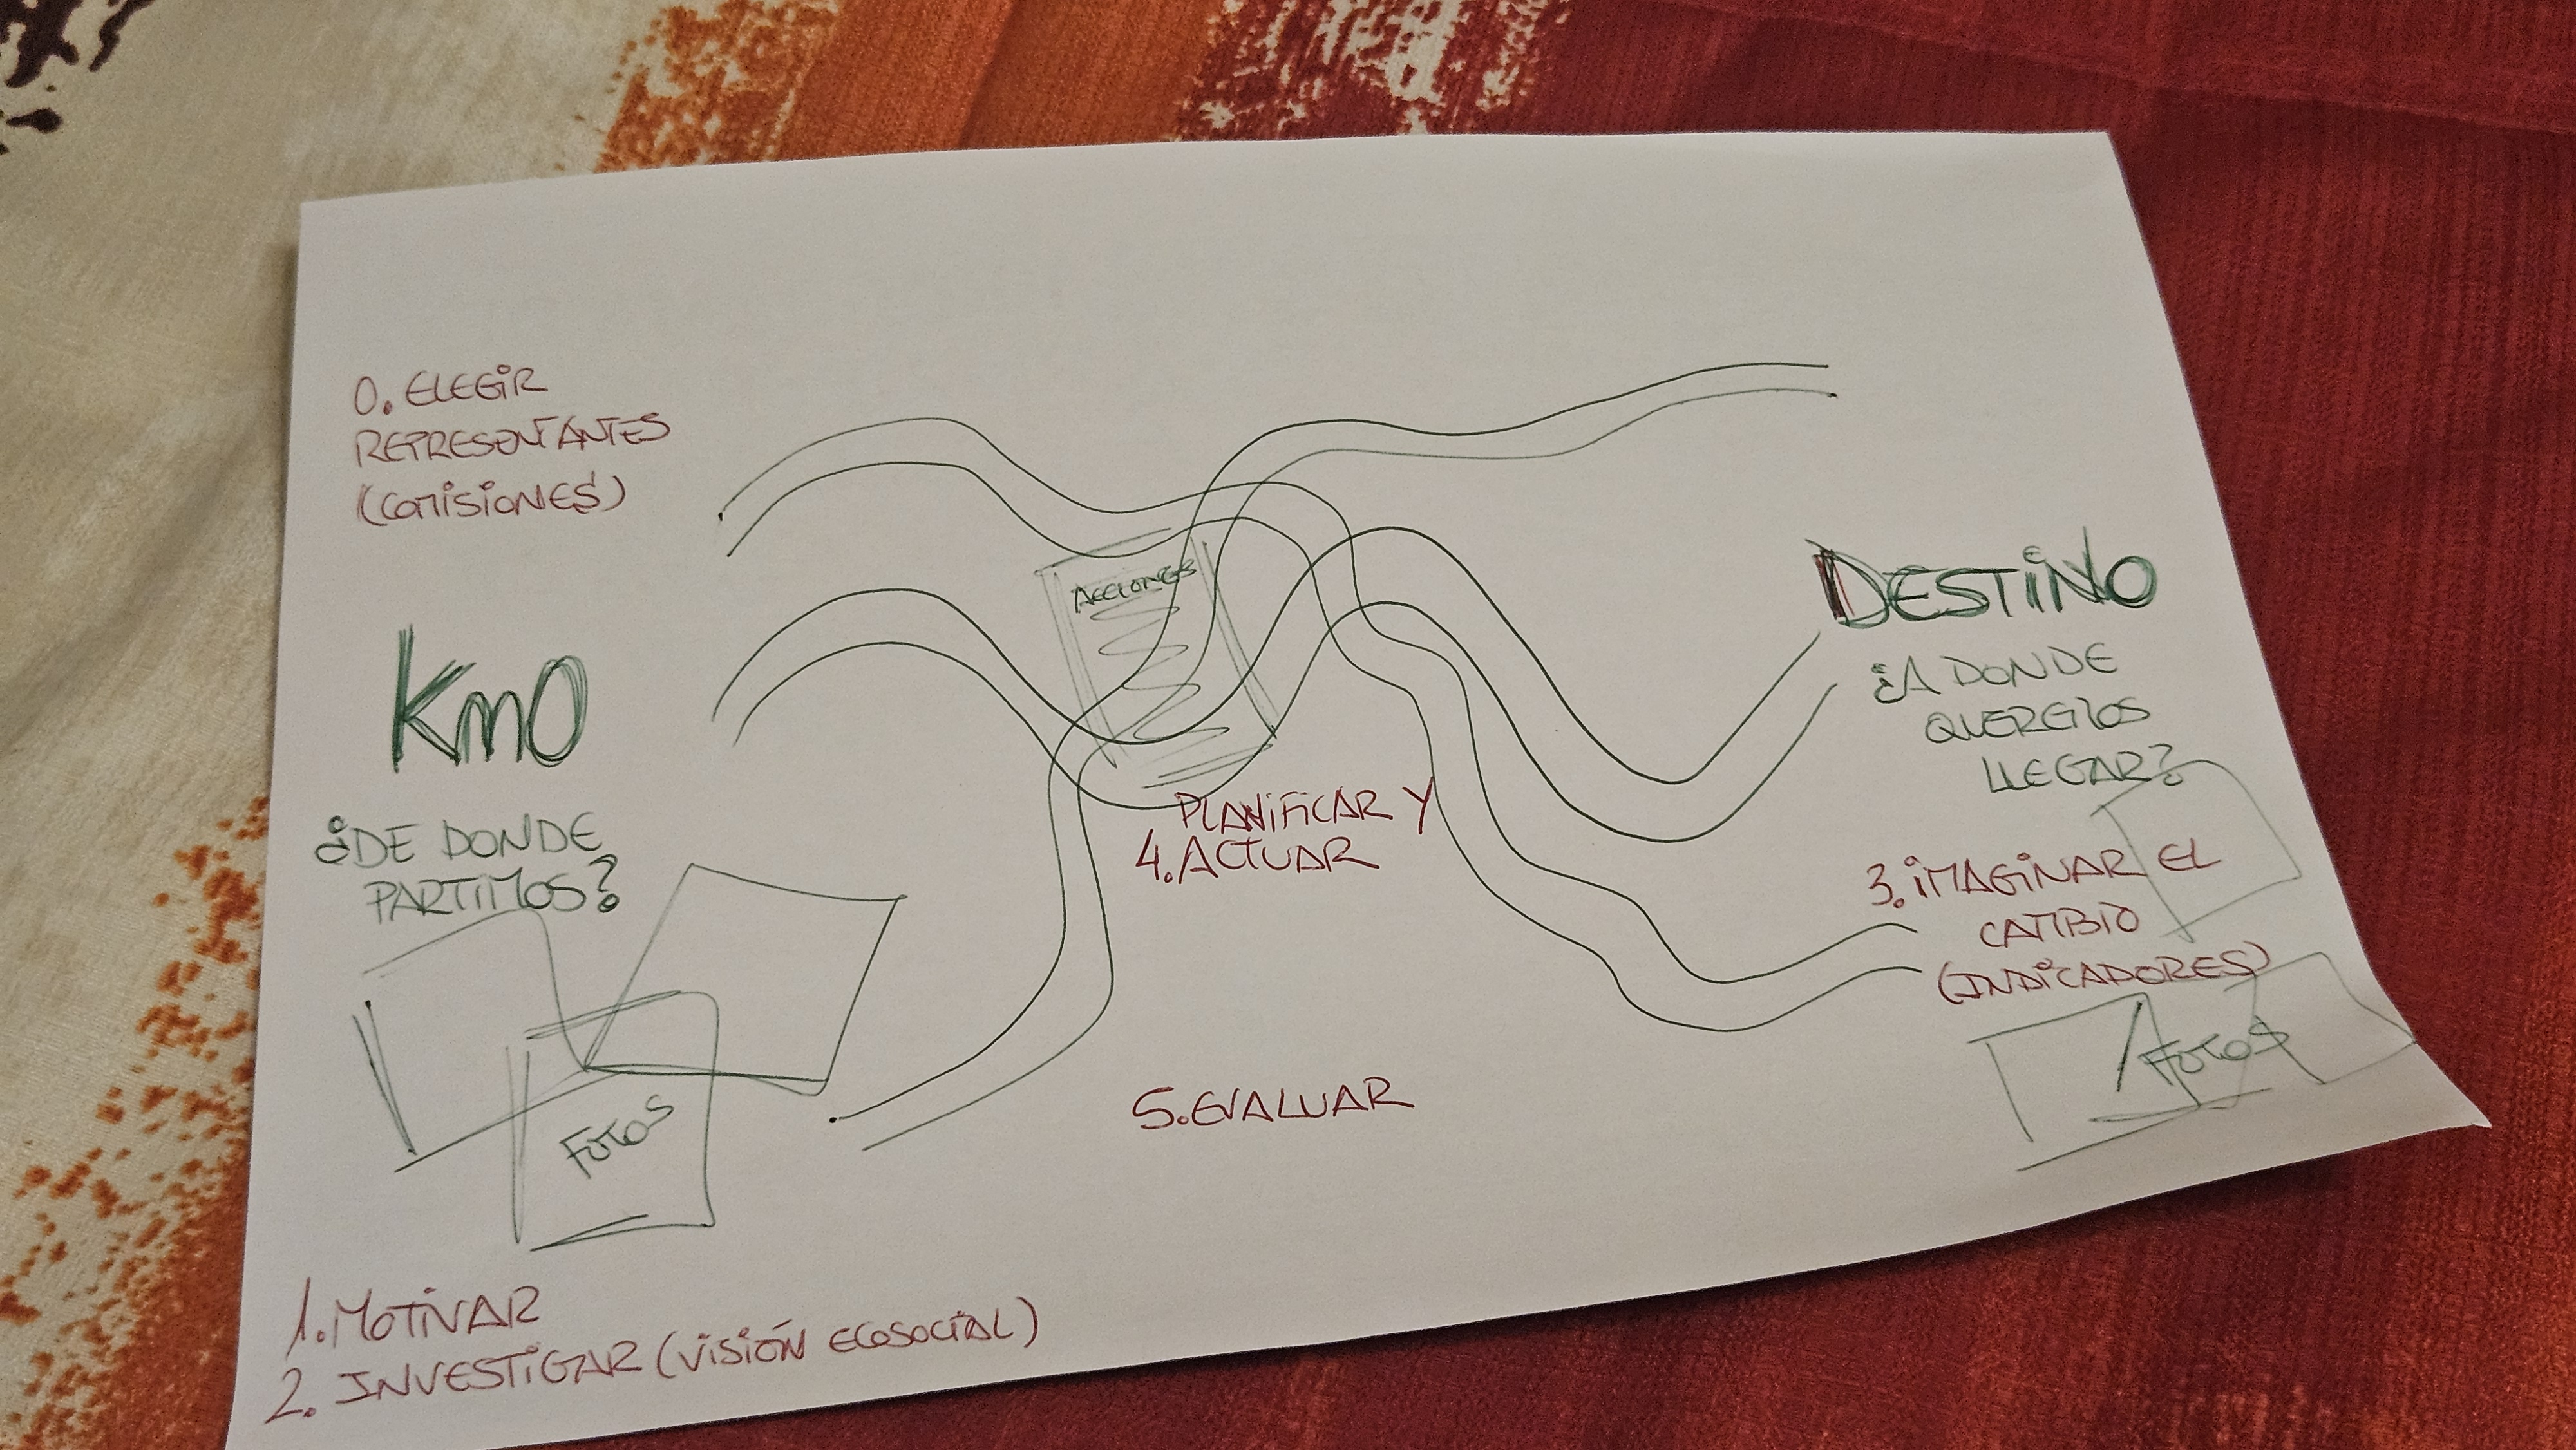 0. ELEGIR
REPRESENTANTES
(COMISIONES)
Km0
¿DE DONDE
PARTIMOS?
FOTOS
1. MOTIVAR
2. INVESTIGAR (VISIÓN ECOSOCIAL)
ACCIONES
PLANIFICAR Y
4. ACTUAR
5. EVALUAR
DESTINO
¿A DONDE
QUEREMOS
LLEGAR?
3. IMAGINAR EL
CAMBIO
(INDICADORES)
FOTOS